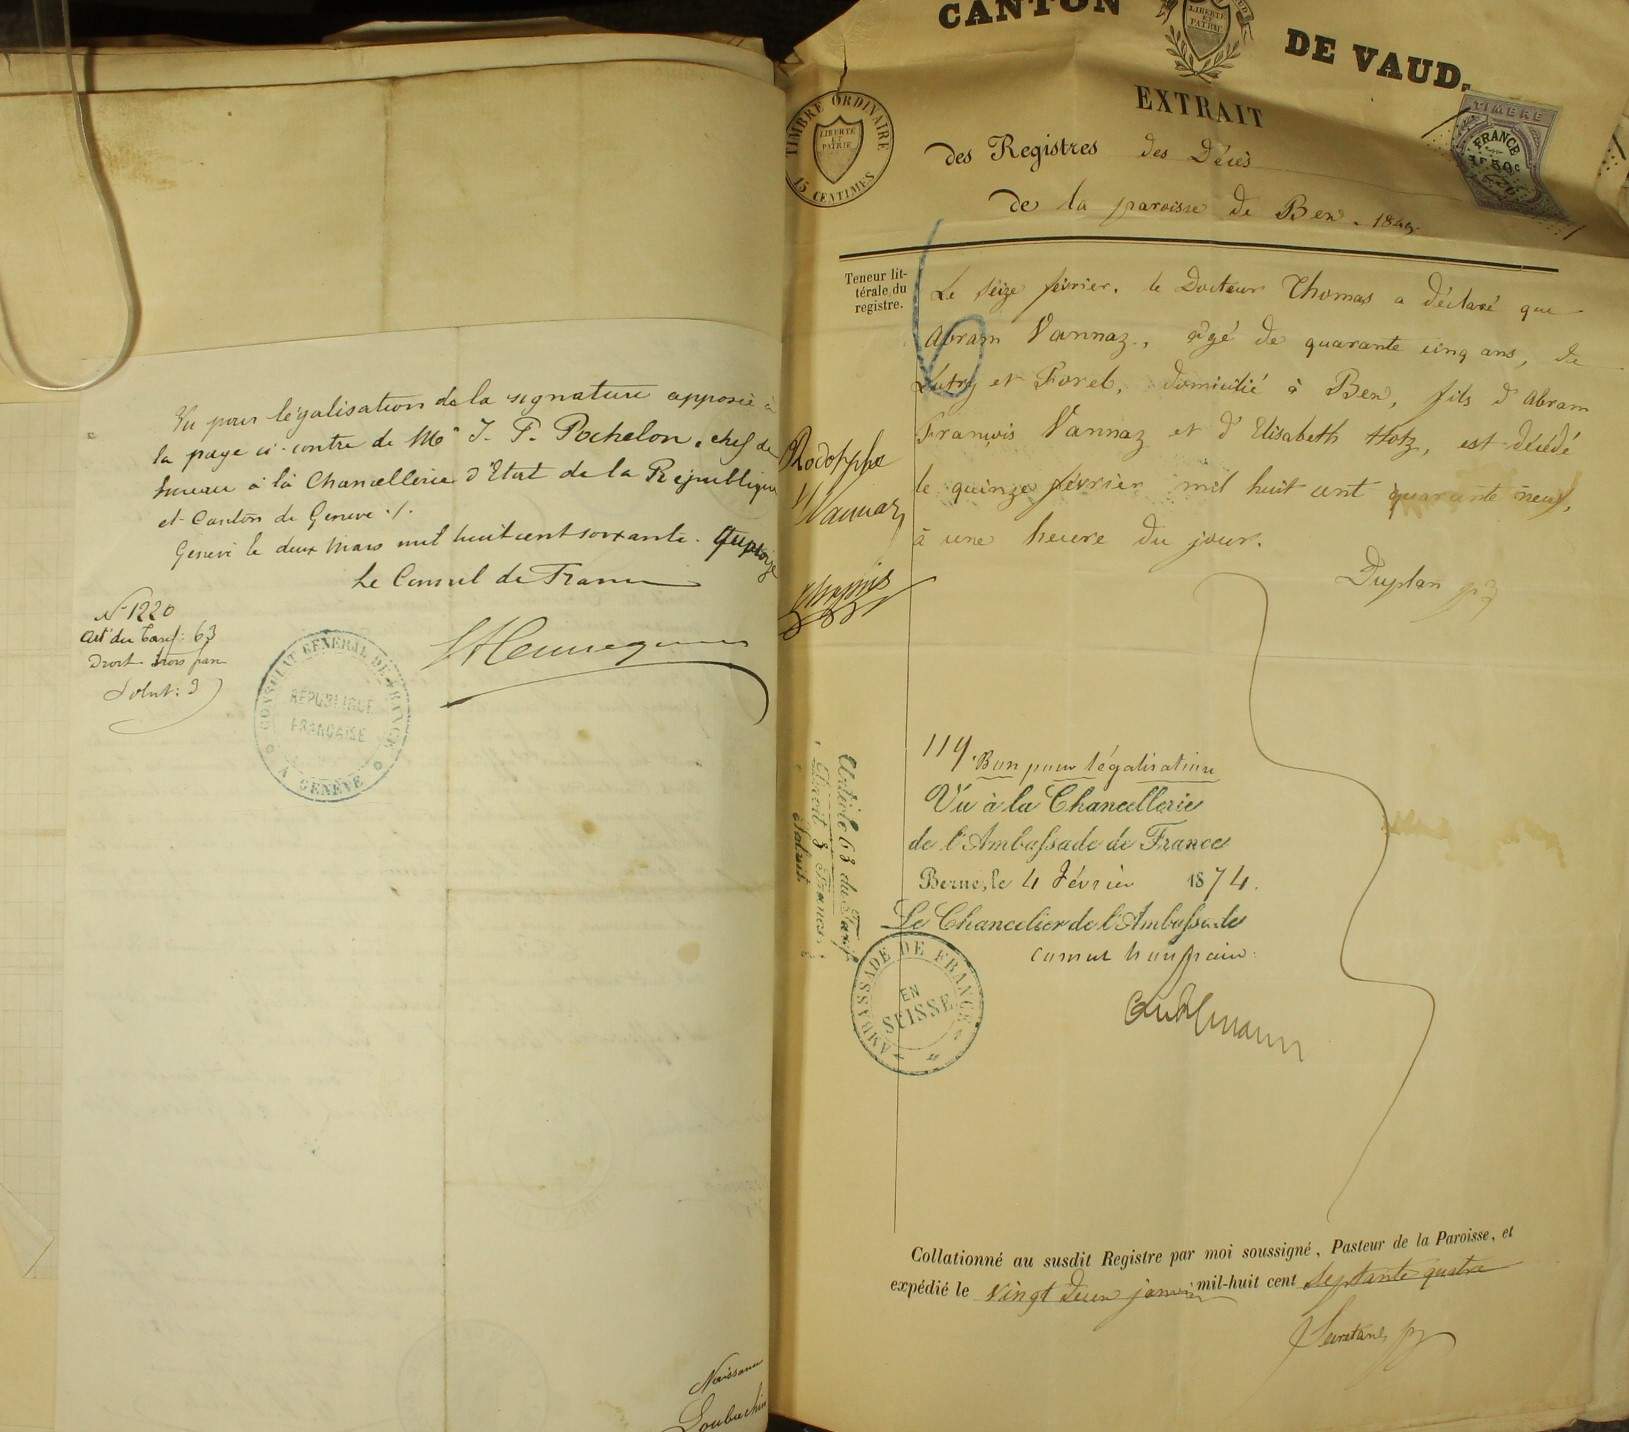 Vu pour légalisation de la signature apposée à
la page ci-contre de Mr J. F. Pochelon, chef de
bureau à la Chancellerie d'Etat de la République
et Canton de Genève ./.
Genève le deux Mars mil huit cent soixante-quatorze
Le Consul de France
No 1220
Art du Tarif: 63
Droit: trois francs
CONSULAT GÉNÉRAL DE FRANCE
RÉPUBLIQUE
FRANÇAISE
À GENÈVE
Naissance
CANTON DE VAUD.
LIBERTÉ
ET
PATRIE
EXTRAIT
TIMBRE ORDINAIRE
LIBERTÉ
ET
PATRIE
15 CENTIMES
TIMBRE
FRANCE
1F 50c
des Registres des Décès
de la paroisse de Bex. 1849
Teneur lit-
térale du
registre.
Le seize février, le Docteur Thomas a déclaré que
Abram Vannaz, âgé de quarante cinq ans, de
Lutry et Forel, domicilié à Bex, fils d'Abram
François Vannaz et d'Elisabeth Hotz, est décédé
le quinze février mil huit cent quarante neuf,
à une heure du jour.
Duplan
Rodolphe
Vannaz
119. Bon pour légalisation
Vu à la Chancellerie
de l'Ambassade de France
Berne, le 4 Février 1874.
Le Chancelier de l'Ambassade
Article 63 du Tarif
Droit 3 Francs
AMBASSADE DE FRANCE
EN
SUISSE
Collationné au susdit Registre par moi soussigné, Pasteur de la Paroisse, et
expédié le vingt deux janvier mil-huit cent septante quatre
Secretan